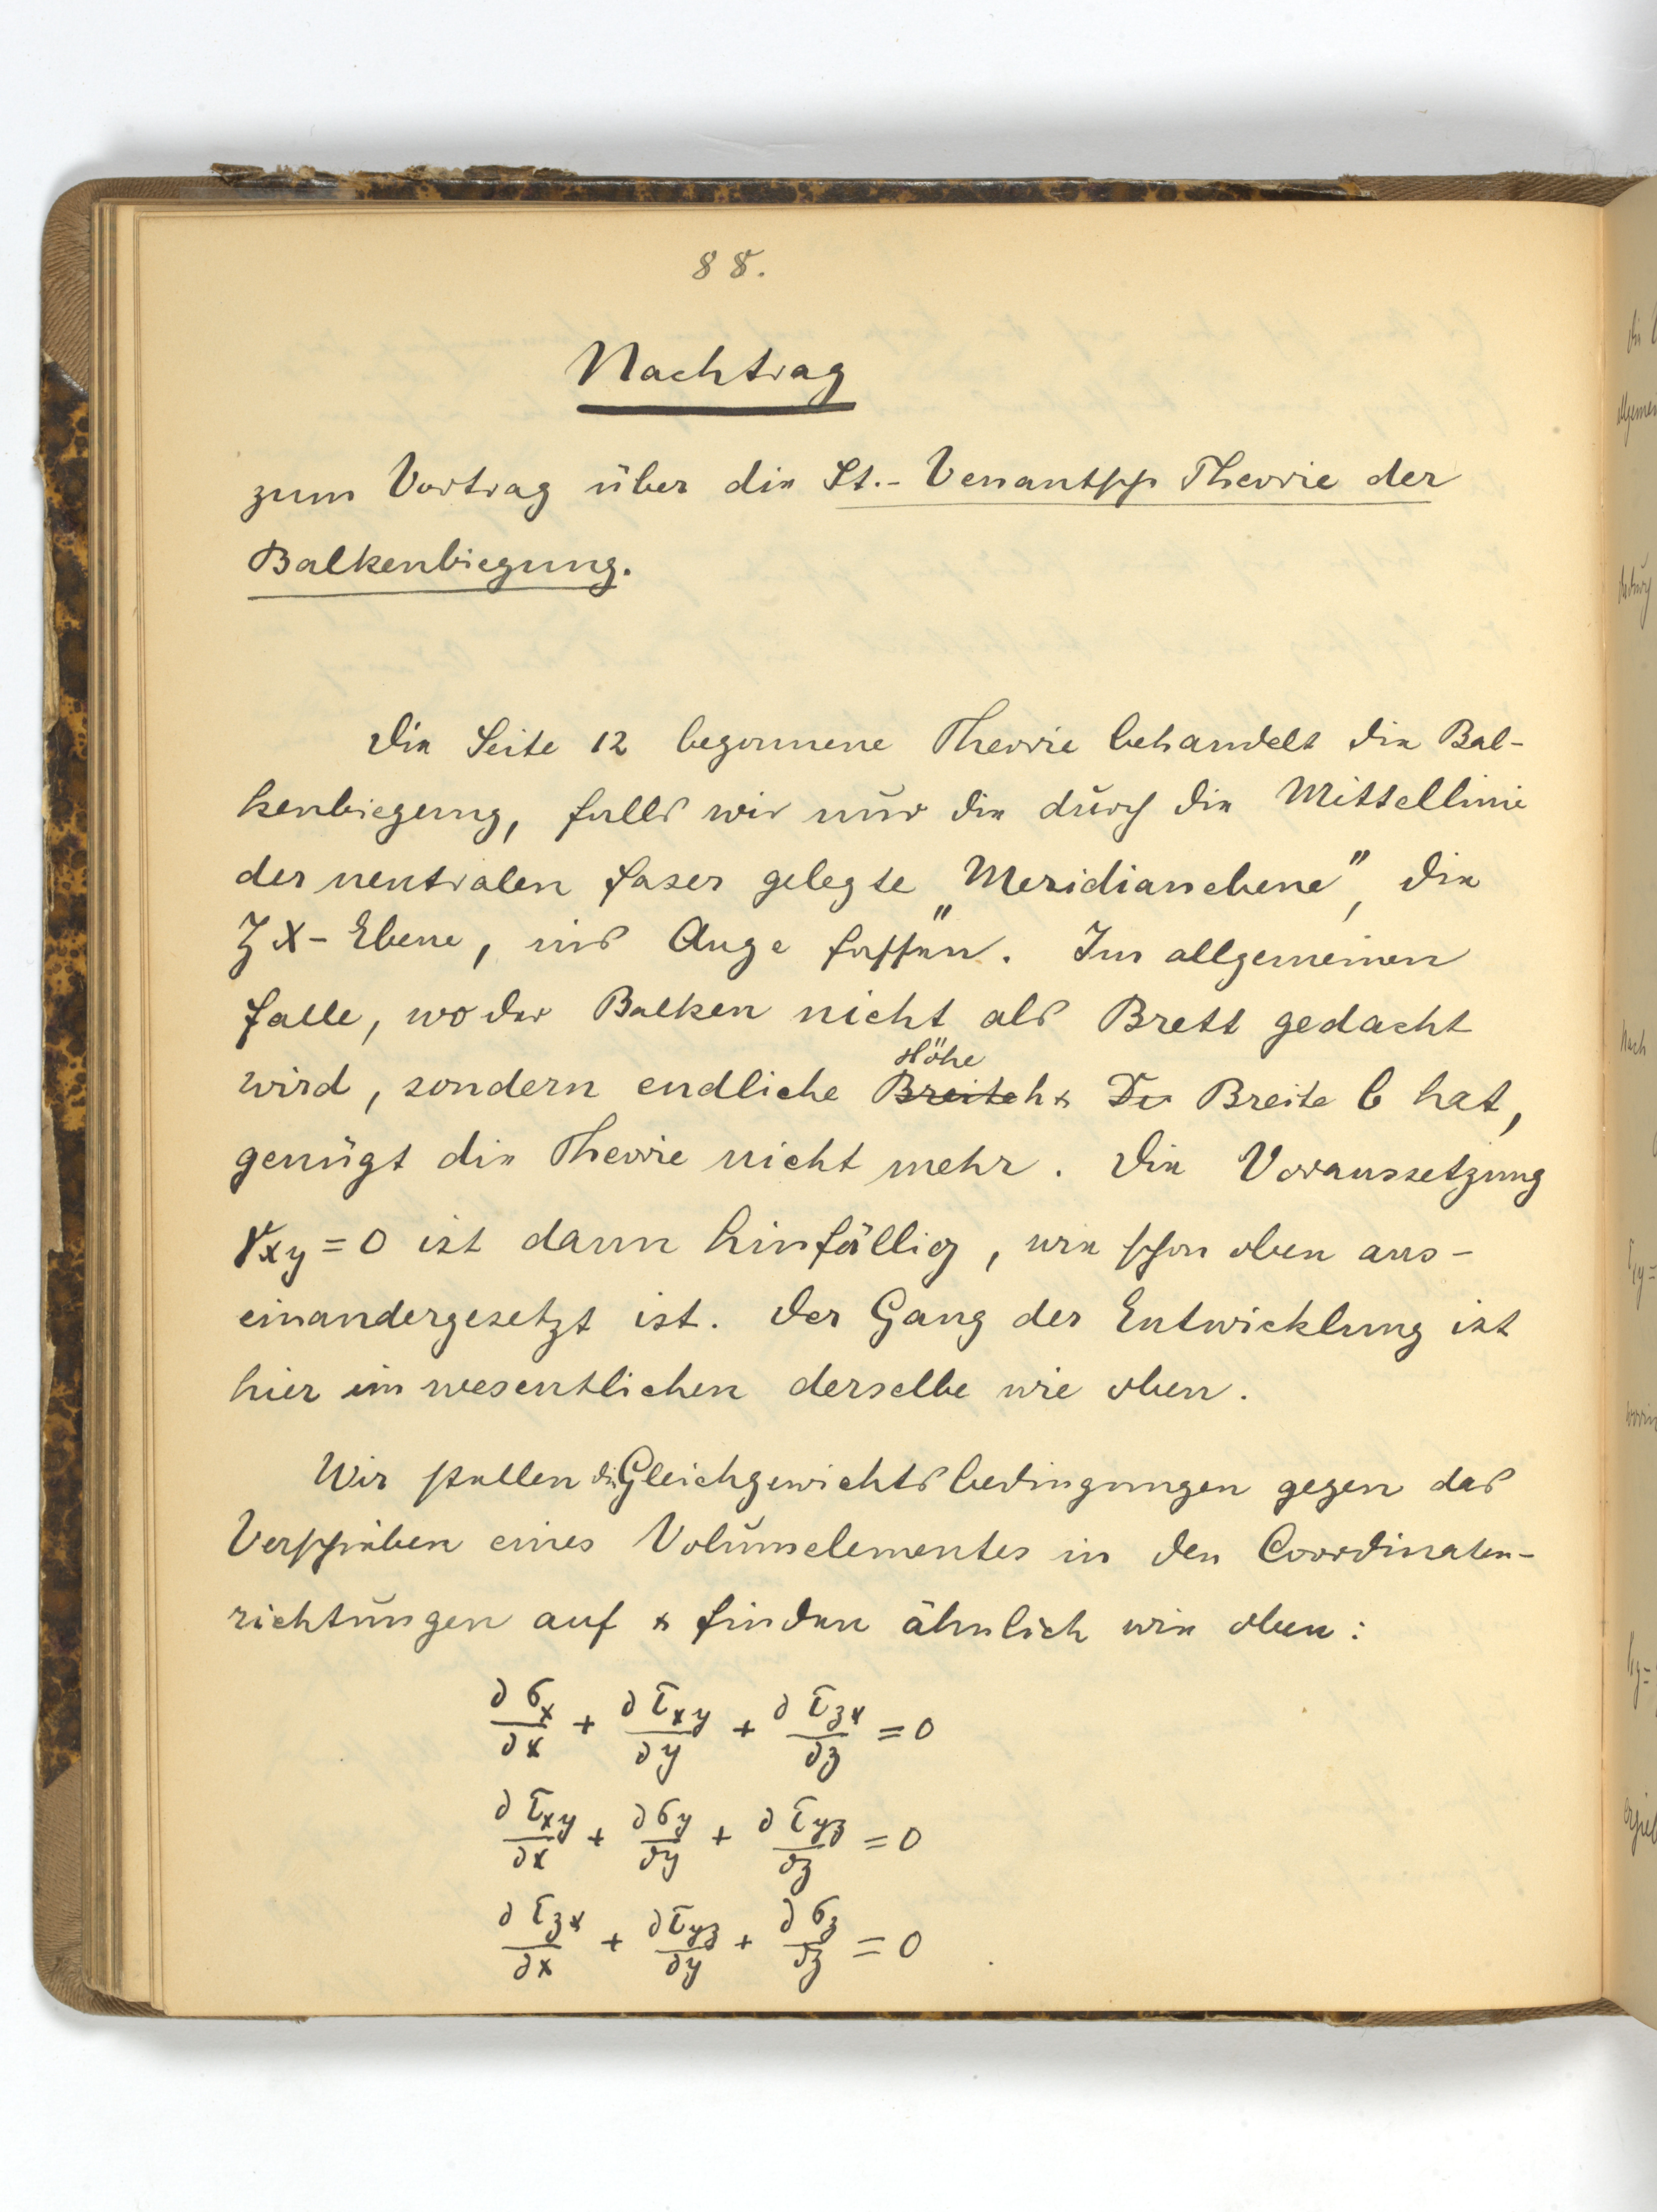 88.
Nachtrag
zum Vortrag über die St.-Venantsch Theorie der
Balkenbiegung.
Die Seite 12 begonnene Theorie behandelt die Bal-
kenbiegung, falls wir nur die durch die Mittellinie
der neutralen Faser gelegte „Meridianebene", die
ZX-Ebene, ins Auge fassen. Im allgemeinen
Falle, wo der Balken nicht als Brett gedacht
Höhe
wird, sondern endliche Breite h & Di Breite b hat,
genügt die Theorie nicht mehr. Die Voraussetzung
γxy = 0 ist dann hinfällig, wie schon oben aus-
einandergesetzt ist. Der Gang der Entwicklung ist
hier im wesentlichen derselbe wie oben.
Wir stellen die Gleichgewichtsbedingungen gegen das
Verschieben eines Volumelementes in den Coordinaten-
richtungen auf & finden ähnlich wie oben:
∂σx/∂x + ∂τxy/∂y + ∂τzx/∂z = 0
∂τxy/∂x + ∂σy/∂y + ∂τyz/∂z = 0
∂τzx/∂x + ∂τyz/∂y + ∂σz/∂z = 0